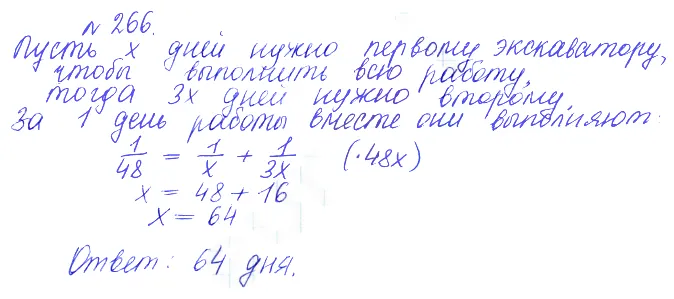 № 266.
Пусть x дней нужно первому экскаватору,
чтобы выполнить всю работу,
тогда 3x дней нужно второму.
За 1 день работы вместе они выполняют:
1/48 = 1/x + 1/3x (·48x)
x = 48 + 16
x = 64
Ответ: 64 дня.